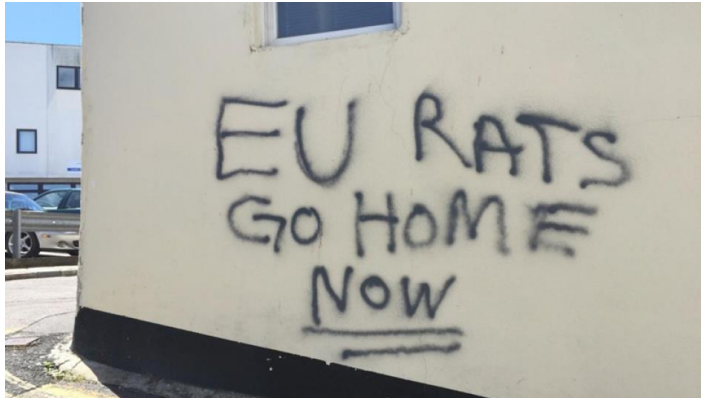 EU RATS
GO HOME
NOW